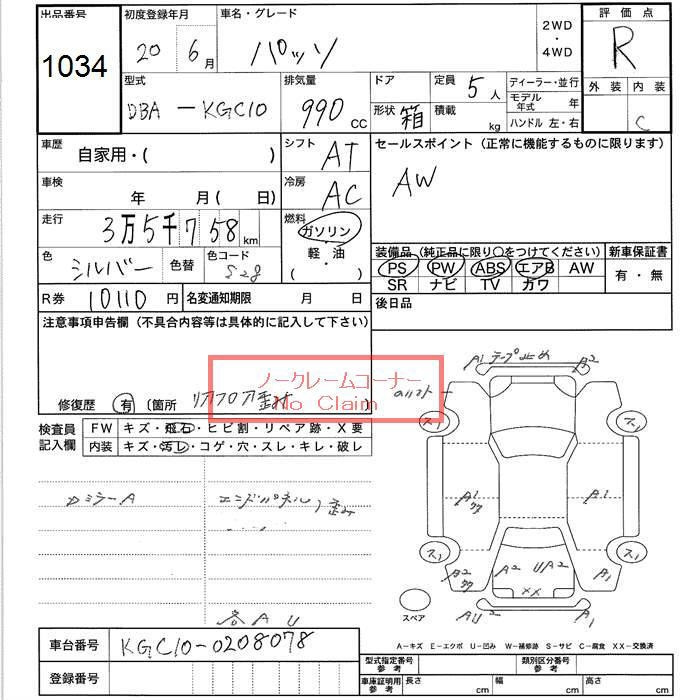 出品番号 初度登録年月 車名・グレード 2WD・4WD 評価点
1034 20 6月 パッソ R
型式 排気量 ドア 定員 5人 ディーラー・並行 外装 内装
DBA-KGC10 990cc 形状 箱 積載 kg モデル年式 年
ハンドル 左・右 C
車歴 自家用・( ) シフト AT セールスポイント (正常に機能するものに限ります)
車検 年 月( 日) 冷房 AC AW
走行 3万5千758km 燃料 ガソリン
軽油
・( )
色 シルバー 色替 色コード S28
装備品 (純正品に限り○をつけてください) 新車保証書
PS PW ABS エアB AW 有・無
SR ナビ TV カワ
R券 10110円 名変通知期限 月 日 後日品
注意事項申告欄 (不具合内容等は具体的に記入して下さい)
ノークレームコーナー
No Claim
修復歴 有 〔箇所 リアフロア歪み 〕
検査員記入欄 FW キズ・飛石・ヒビ割・リペア跡・X要
内装 キズ・汚レ・コゲ・穴・スレ・キレ・破レ
DミラーA エンドパネル 歪み
各AU
A1 テープ止め A2
ス1 ス1
A1 A1
ス1 ス1
A2 A2 UA2 A1
XX
スペア AU2 A1
A-キズ E-エクボ U-凹み W-補修跡 S-サビ C-腐食 XX-交換済
車台番号 KGC10-0208078
登録番号
型式指定番号参考 類別区分番号参考
車庫証明用参考 長さ cm 幅 cm 高さ cm